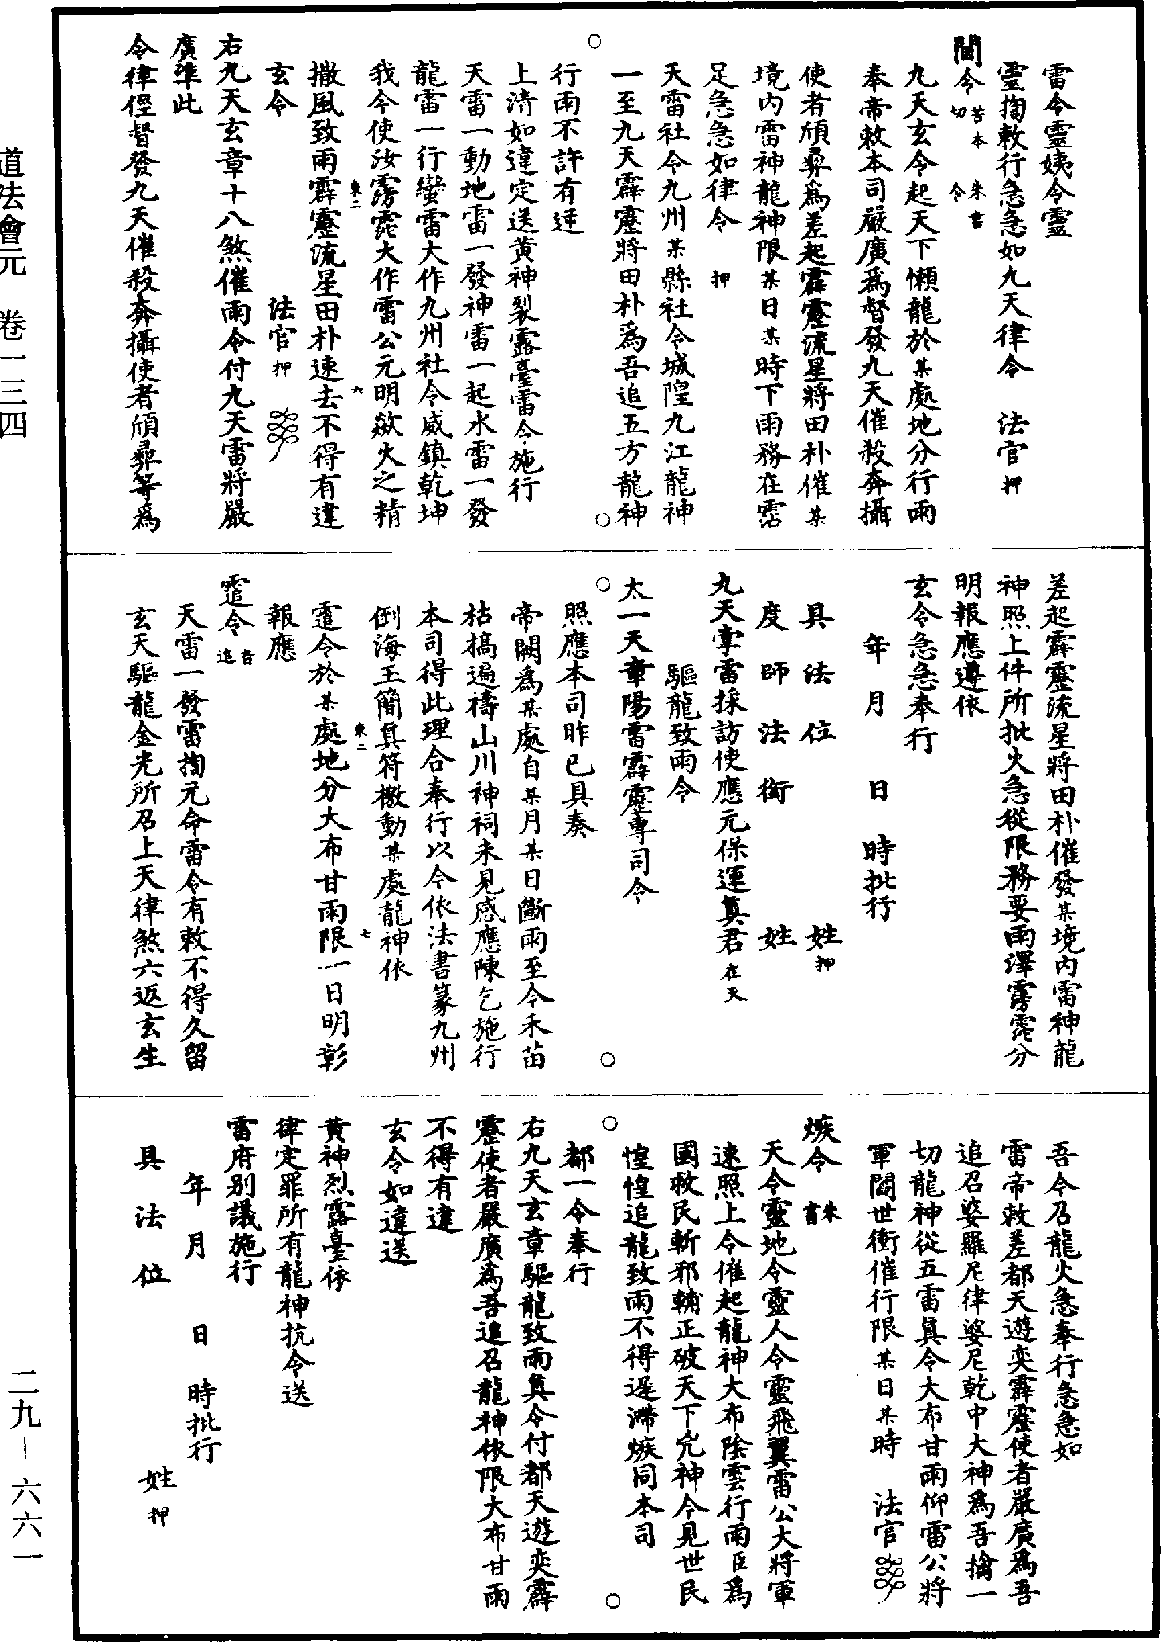 雷令靈姨令靈
霊掏敕行急急如九天律令　法官押
閶令苦本切　朱書令
九天玄令起天下懶龍於某處地分行雨
奉帝敕本司嚴廣爲督發九天催殺奔攝
使者頎彝爲差起霹靂流星將田朴催某
境内雷神龍神限某日某時下雨務在霑
足急急如律令　押
天雷社令九州某縣社令城隍九江龍神
一至九天霹靂將田朴爲吾追五方龍神
行雨不許有逆
上清如違定送黄神裂露臺雷令施行
天雷一動地雷一發神雷一起水雷一發
龍雷一行蠻雷大作九州社令威鎮乾坤
我今使汝霶霈大作雷公元明歘火之精
撒風致雨霹靂流星田朴速去不得有違
玄令　法官押
右九天玄章十八煞催雨令付九天雷將嚴
廣準此
令律徑督發九天催殺奔攝使者頎彝等爲
差起霹靂流星將田朴催發某境内雷神龍
神照上件所批火急從限務要雨澤霶霈分
明報應遵依
玄令急急奉行
年　月　日　時批行
具法位　姓押
度師法銜　姓
九天掌雷採訪使應元保運真君在天
驅龍致雨令
太一天章陽雷霹靂專司令
照應本司昨已具奏
帝闕爲某處自某月某日斷雨至今禾苗
枯槁遍禱山川神祠未見感應陳乞施行
本司得此理合奉行以今依法書篆九州
倒海王簡真符檄動某處龍神依
霆令於某處地分大布甘雨限一日明彰
報應
霔令音追
天雷一發雷掏元命雷令有敕不得久留
玄天驅龍金光所召上天律煞六返玄生
吾令召龍火急奉行急急如
雷帝敕差都天遊奕霹靂使者嚴廣爲吾
追召婆羅尼律婆尼乾中大神爲吾擒一
切龍神從五雷真令大布甘雨仰雷公將
軍閻世衝催行限某日某時　法官
熫令　朱書
天令靈地令靈人令靈飛翼雷公大將軍
速照上令催起龍神大布陰雲行雨臣爲
國救民斬邪輔正破天下兇神今見世民
惶惶追龍致雨不得遲滯熫同本司
都一令奉行
右九天玄章驅龍致雨真令付都天遊奕霹
靂使者嚴廣爲吾追召龍神依限大布甘雨
不得有違
玄令如違送
黄神烈露臺依
律定罪所有龍神抗令送
雷府別議施行
年　月　日　時批行
具法位　姓押
道法會元　卷一三四
二九－六六一